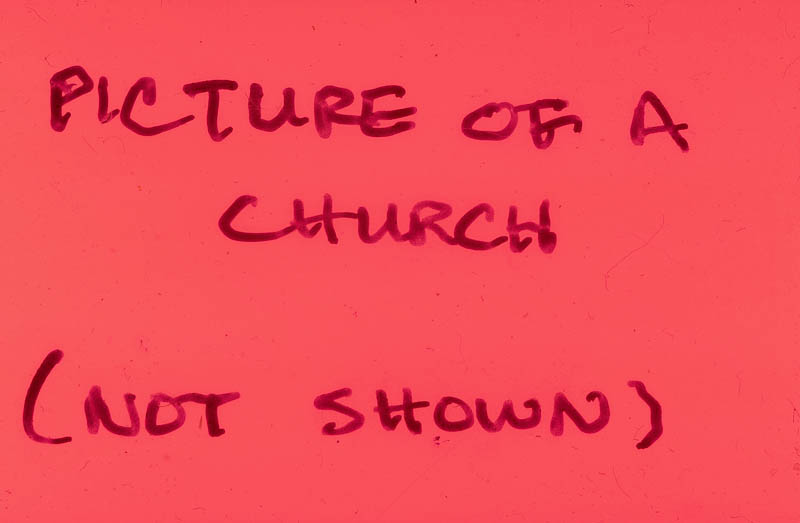 PICTURE OF A
CHURCH
(NOT SHOWN)